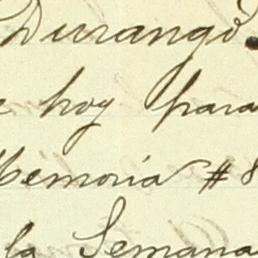 Durango.
e hoy para
Memoria #8
la Semana